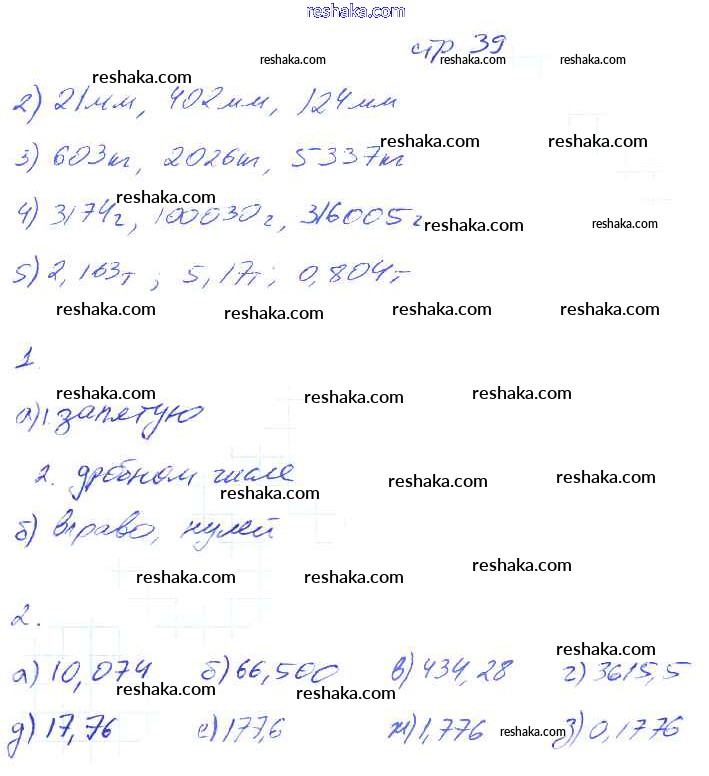 reshaka.com
стр 39
reshaka.com reshaka.com reshaka.com
reshaka.com
2) 21мм, 402мм, 124мм
reshaka.com reshaka.com
3) 603кг, 2026кг, 5337кг
reshaka.com
4) 3174г, 100030г, 316005г
reshaka.com reshaka.com
5) 2,163т; 5,17т; 0,804т
reshaka.com reshaka.com reshaka.com reshaka.com
1.
reshaka.com reshaka.com reshaka.com
а) 1. запятую
2. дробном числе
reshaka.com reshaka.com reshaka.com
б) вправо, нулей
reshaka.com reshaka.com reshaka.com
2.
reshaka.com
а) 10,074 б) 66,500 в) 434,28 г) 3615,5
reshaka.com reshaka.com
д) 17,76 е) 177,6 ж) 1,776 з) 0,1776
reshaka.com